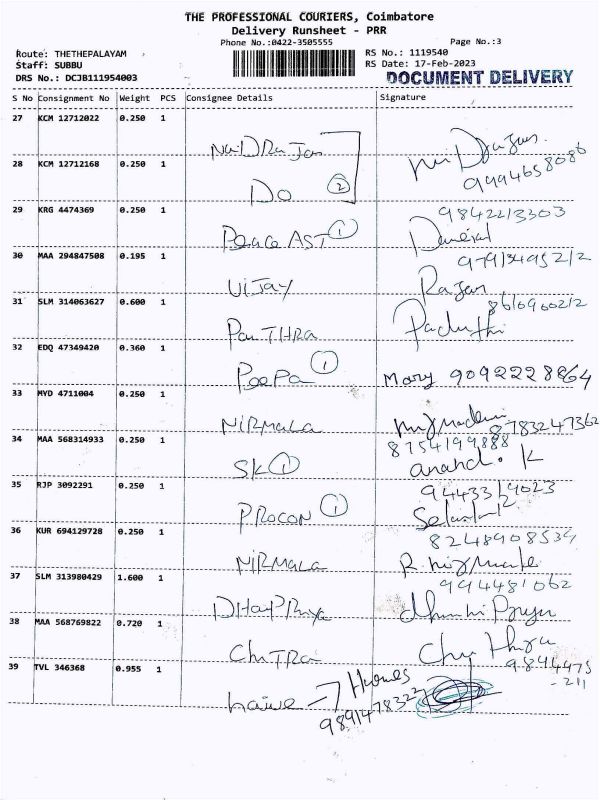 THE PROFESSIONAL COURIERS, Coimbatore
Delivery Runsheet - PRR
Phone No.:0422-3505555
Page No.:3
Route: THETHEPALAYAM
Staff: SUBBU
DRS No.: DCJB111954003
RS No.: 1119540
RS Date: 17-Feb-2023
DOCUMENT DELIVERY
S No Consignment No Weight PCS Consignee Details Signature
27 KCM 12712022 0.250 1
NaDRaJan
28 KCM 12712168 0.250 1
Do 2
9994658086
29 KRG 4474369 0.250 1
9842213303
Peace AST 1 Daniel
30 MAA 294847508 0.195 1
Vijay Rajan
31 SLM 314063627 0.600 1
8610960212
32 EDQ 47349420 0.360 1
Peepa 1 Mary 9092228864
33 MYD 4711004 0.250 1
NiRMaLa
8783247362
34 MAA 568314933 0.250 1
8754199888
SK 1 anand. K
35 RJP 3092291 0.250 1
PROCON 1
36 KUR 694129728 0.250 1
8248908539
NiRMaLa
37 SLM 313980429 1.600 1
994481062
DHaY PRiya
38 MAA 568769822 0.720 1
ChiTRa
39 TVL 346368 0.955 1
9844475
-211
9891478322